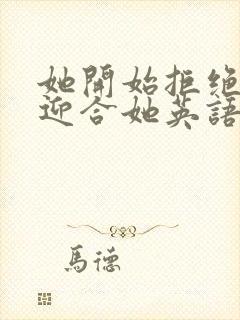 她開始拒絕
迎合她英語
馬德